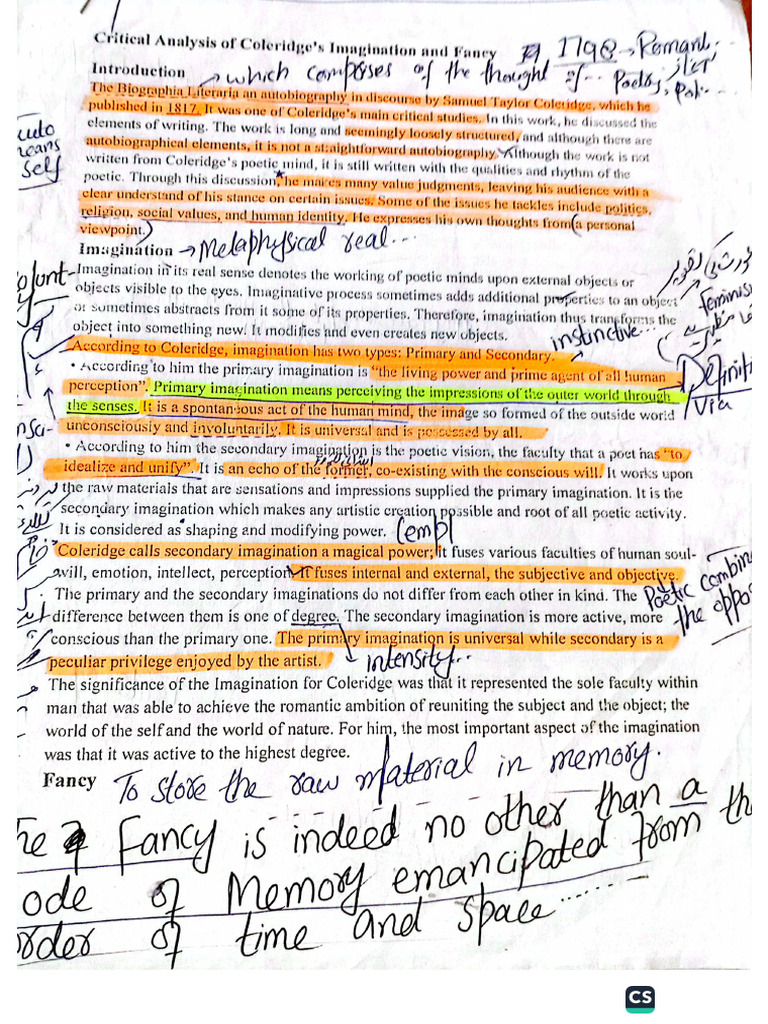 Critical Analysis of Coleridge's Imagination and Fancy
1798 → Romant.
Introduction
→ which composes of the thought of... Poetry,
The Biographia Literaria an autobiography in discourse by Samuel Taylor Coleridge, which he
published in 1817. It was one of Coleridge's main critical studies. In this work, he discussed the
elements of writing. The work is long and seemingly loosely structured, and although there are
autobiographical elements, it is not a straightforward autobiography. Although the work is not
written from Coleridge's poetic mind, it is still written with the qualities and rhythm of the
poetic. Through this discussion, he makes many value judgments, leaving his audience with a
clear understand of his stance on certain issues. Some of the issues he tackles include politics,
religion, social values, and human identity. He expresses his own thoughts from (a personal
viewpoint.)
auto
means
self
Imagination → Metaphysical real...
Imagination in its real sense denotes the working of poetic minds upon external objects or
objects visible to the eyes. Imaginative process sometimes adds additional properties to an object
or sometimes abstracts from it some of its properties. Therefore, imagination thus transforms the
object into something new. It modifies and even creates new objects.
instinctive...
According to Coleridge, imagination has two types: Primary and Secondary.
• According to him the primary imagination is "the living power and prime agent of all human
perception". Primary imagination means perceiving the impressions of the outer world through
the senses. It is a spontaneous act of the human mind, the image so formed of the outside world
unconsciously and involuntarily. It is universal and is possessed by all.
Via
• According to him the secondary imagination is the poetic vision, the faculty that a poet has "to
idealize and unify". It is an echo of the former, co-existing with the conscious will. It works upon
the raw materials that are sensations and impressions supplied the primary imagination. It is the
secondary imagination which makes any artistic creation possible and root of all poetic activity.
It is considered as shaping and modifying power.
(empl
Coleridge calls secondary imagination a magical power; it fuses various faculties of human soul-
will, emotion, intellect, perception. It fuses internal and external, the subjective and objective.
The primary and the secondary imaginations do not differ from each other in kind. The
difference between them is one of degree. The secondary imagination is more active, more
conscious than the primary one. The primary imagination is universal while secondary is a
peculiar privilege enjoyed by the artist.
Poetic combin
the oppos
intensity...
The significance of the Imagination for Coleridge was that it represented the sole faculty within
man that was able to achieve the romantic ambition of reuniting the subject and the object; the
world of the self and the world of nature. For him, the most important aspect of the imagination
was that it was active to the highest degree.
Fancy To store the raw material in memory.
Fancy is indeed no other than a
ode of Memory emancipated from the
order of time and space........
CS